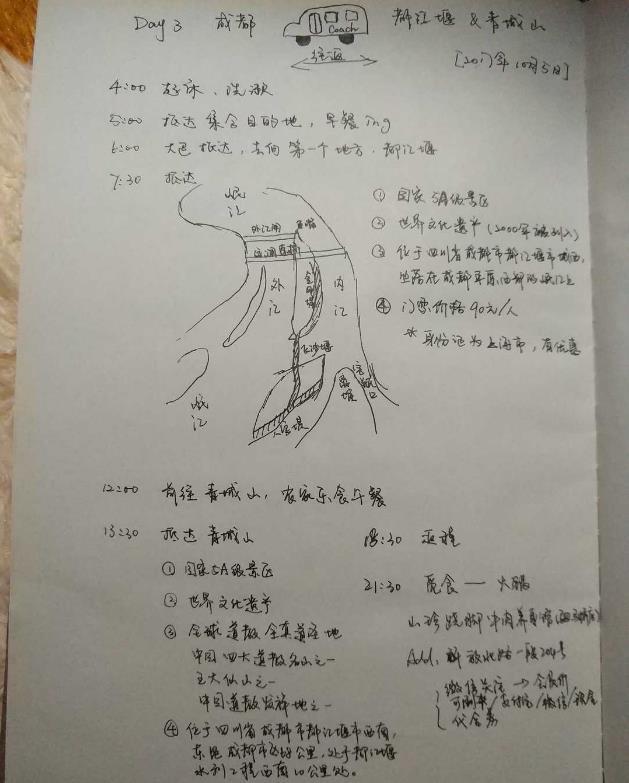 Day 3 成都 Coach 都江堰 & 青城山
往返
[2017年10月5日]
4:00 起床、洗漱
5:00 抵达集合目的地,早餐ing
6:00 大巴抵达,去往第一个地方,都江堰
7:30 抵达
岷江
外江闸
外江
内江
金刚堤
飞沙堰
宝瓶口
离堆
人字堤
岷江
① 国家5A级景区
② 世界文化遗产 (2000年被列入)
③ 位于四川省成都市都江堰市城西,
坐落在成都平原西部的岷江上
④ 门票价格90元/人
* 身份证为上海市,有优惠
12:00 前往青城山,农家乐食午餐
13:30 抵达青城山
① 国家5A级景区
② 世界文化遗产
③ 全球道教全真道圣地
中国四大道教名山之一
五大仙山之一
中国道教发祥地之一
④ 位于四川省成都市都江堰市西南,
东距成都市68公里,处于都江堰
水利工程西南10公里处。
18:30 返程
21:30 觅食 — 火锅
山珍跷脚牛肉养身馆
Add. 解放北路一段204号
微信关注 → 会员价
可刷卡/支付宝/微信/现金
代金券